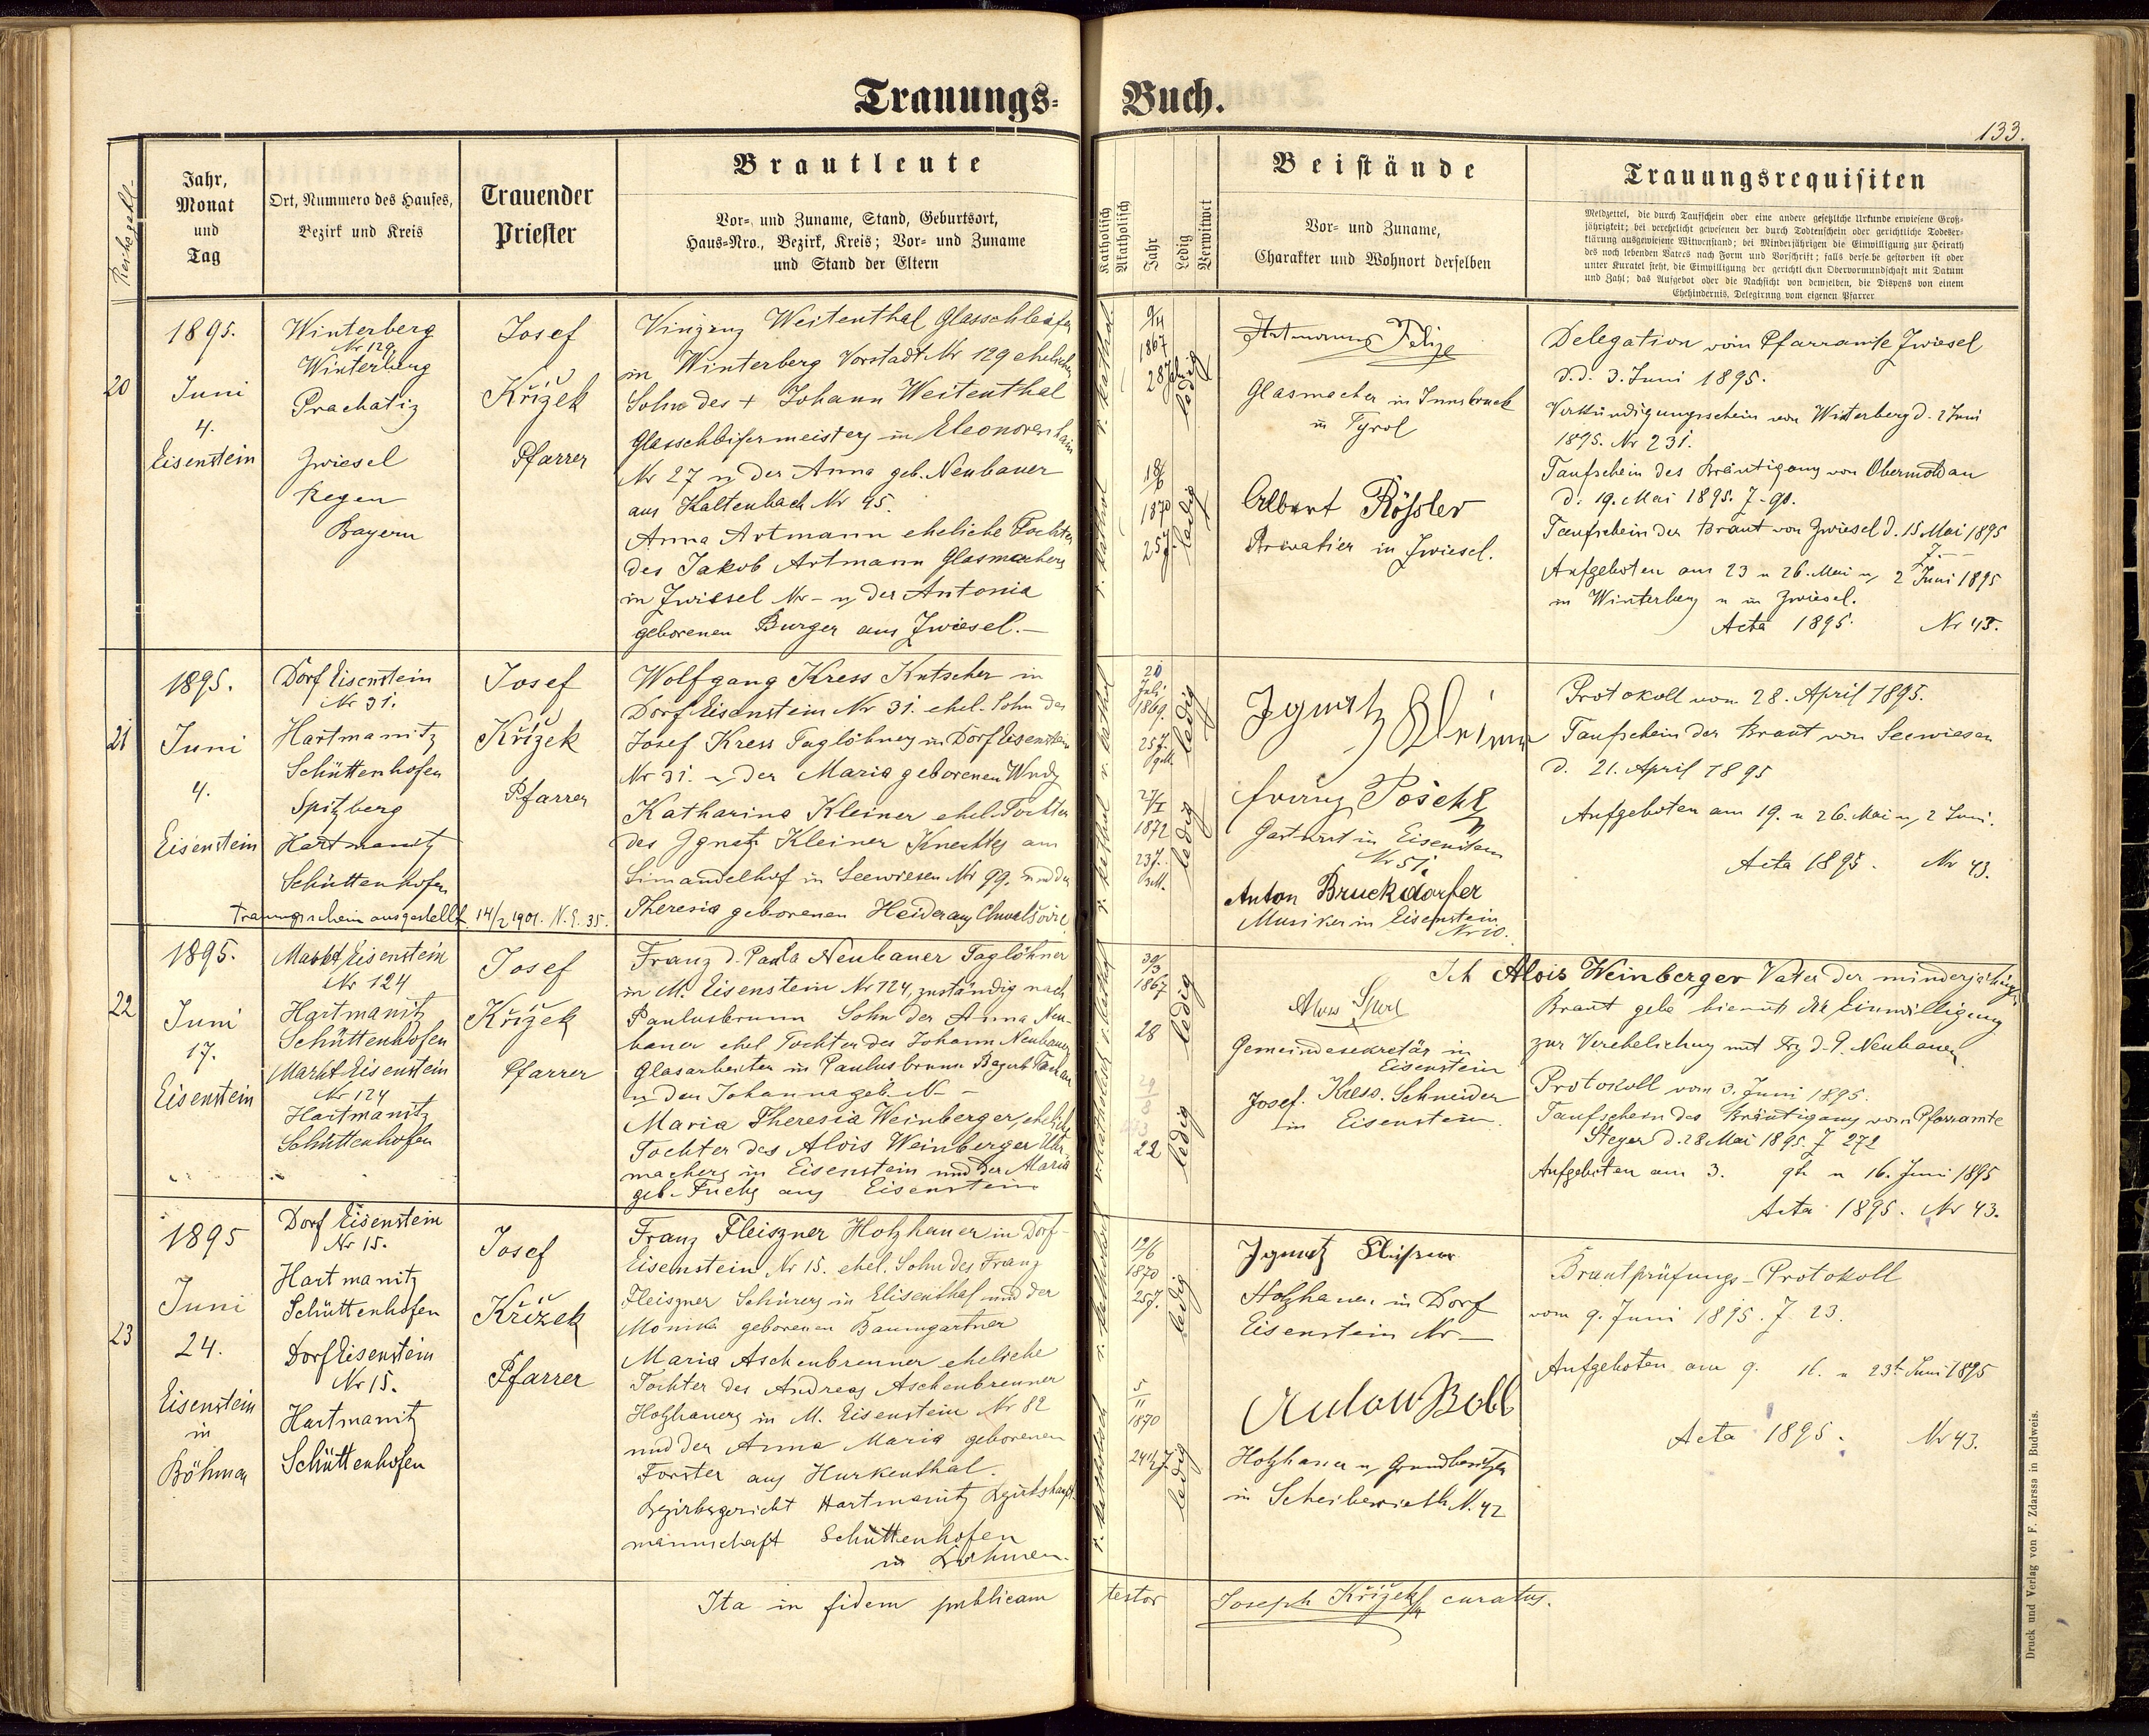 Trauungs- Buch.
133.
Reihezahl
Jahr,
Monat
und
Tag
Ort, Nummero des Hauses,
Bezirk und Kreis
Trauender
Priester
Brautleute
Vor- und Zuname, Stand, Geburtsort,
Haus-Nro., Bezirk, Kreis; Vor- und Zuname
und Stand der Eltern
Katholisch
Akatholisch
Jahr
Ledig
Verwitwet
Beistände
Vor- und Zuname,
Charakter und Wohnort derselben
Trauungsrequisiten
Meldzettel, die durch Taufschein oder eine andere gesetzliche Urkunde erwiesene Groß-
jährigkeit; bei verehelicht gewesenen der durch Todtenschein oder gerichtliche Todeser-
klärung ausgewiesene Witwenstand; bei Minderjährigen die Einwilligung zur Heirath
des noch lebenden Vaters nach Form und Vorschrift; falls derselbe gestorben ist oder
unter Kuratel steht, die Einwilligung der gerichtlichen Obervormundschaft mit Datum
und Zahl; das Aufgebot oder die Nachsicht von demselben, die Dispens von einem
Ehehindernis, Delegirung vom eigenen Pfarrer
20
1895.
Juni
4.
Eisenstein
Winterberg
Nr 129
Winterberg
Prachatiz
Zwiesel
Regen
Bayern
Josef
Křížek
Pfarrer
Vinzenz Weitenthal Glasschleifer
in Winterberg Vorstadt Nr 129 ehelicher
Sohn des + Johann Weitenthal
Glasschleifermeisters in Eleonorenhain
Nr 27 u der Anna geb. Neubauer
aus Kaltenbach Nr 45.
Anna Artmann eheliche Tochter
des Jakob Artmann Glasmachers
in Zwiesel Nr - u der Antonia
geborenen Burger aus Zwiesel.—
r. kathol.
9/4
1867
28 Jahr
ledig
r. kathol
18/6
1870
25 J.
ledig
Artmann Felize
Glasmacher in Innsbruck
in Tyrol
Albert Rößler
Privatier in Zwiesel.
Delegation vom Pfarramte Zwiesel
d.d. 3. Juni 1895.
Verkündigungsschein von Winterberg d. 2 Juni
1895. Nr 231.
Taufschein des Bräutigams von Obermoldau
d. 19. Mai 1895. Z. 90.
Taufschein der Braut von Zwiesel d. 15. Mai 1895
Z.—
Aufgeboten am 23 u 26. Mai u 2 Juni 1895
in Winterberg u in Zwiesel.
Acta 1895. Nr 43.
21
1895.
Juni
4.
Eisenstein
Dorf Eisenstein
Nr 31.
Hartmanitz
Schüttenhofen
Spitzberg
Hartmanitz
Schüttenhofen
Trauungsschein ausgestellt 14/2 1901. N.E. 35.
Josef
Křížek
Pfarrer
Wolfgang Kress Kutscher in
Dorf Eisenstein Nr 31. ehel. Sohn des
Josef Kress Taglöhners in Dorf Eisenstein
Nr 31. u der Maria geborenen
Katharina Kleiner ehel. Tochter
des Ignatz Kleiner Knechtes am
Simandelhof in Seewiesen Nr 99. und der
Theresia geborenen Heider aus
r. kathol
20
Juli
1869.
25 J.
ledig
r. kathol
27/I
1872
23 J.
ledig
Ignatz
Franz Pöschl
Gastwirt in Eisenstein
Nr 51.
Anton Bruckdorfer
Musiker in Eisenstein
Nr 10.
Protokoll vom 28. April 1895.
Taufschein der Braut von Seewiesen
d. 21. April 1895
Aufgeboten am 19. u 26. Mai u 2 Juni.
Acta 1895. Nr 43.
22
1895.
Juni
17.
Eisenstein
Markt Eisenstein
Nr 124
Hartmanitz
Schüttenhofen
Markt Eisenstein
Nr 124
Hartmanitz
Schüttenhofen
Josef
Křížek
Pfarrer
Franz d. Paula Neubauer Taglöhner
in M. Eisenstein Nr 124, zuständig nach
Paulusbrunn Sohn der Anna Neu-
bauer ehel Tochter des Johann Neubauer
Glasarbeiter in Paulusbrunn Bezirk Tachau
u der Johanna geb. N—
Maria Theresia Weinberger, eheliche
Tochter des Alois Weinberger Uhr-
machers in Eisenstein und der Maria
geb. Fuchs aus Eisenstein
r. kathol
30/3
1867
28
ledig
r. katholisch
22
ledig
Alois
Gemeindesekretär in
Eisenstein
Josef Kress. Schneider
in Eisenstein.
Ich Alois Weinberger Vater der minderjährigen
Braut gebe hiemit die Einwilligung
zur Verehelichung mit Frz d. P. Neubauer
Protokoll vom 3. Juni 1895.
Taufschein des Bräutigams vom Pfarramte
Steyer d. 28 Mai 1895. Z 272
Aufgeboten am 3. 9t u 16. Juni 1895
Acta 1895. Nr 43.
23
1895
Juni
24.
Eisenstein
in
Böhmen
Dorf Eisenstein
Nr 15.
Hartmanitz
Schüttenhofen
Dorf Eisenstein
Nr 15.
Hartmanitz
Schüttenhofen
Josef
Křížek
Pfarrer
Franz Fleiszner Holzhauer in Dorf-
Eisenstein Nr 15. ehel. Sohn des Franz
Fleiszner Schürers in Elisenthal und der
Monika geborenen Baumgartner
Maria Aschenbrenner eheliche
Tochter des Andreas Aschenbrenner
Holzhauers in M. Eisenstein Nr 82
und der Anna Maria geborenen
Forster aus Hurkenthal.
Bezirksgericht Hartmanitz Bezirkshaupt-
mannschaft Schüttenhofen
in Böhmen.
r. katholisch
12/6
1870
25 J.
ledig
r. katholisch
5/11
1870
24½ J
ledig
Ignatz Fleißner
Holzhauer in Dorf
Eisenstein Nr —
Anton Boll
Holzhauer u Grundbesitzer
in N. 42
Brautprüfungs-Protokoll
vom 9. Juni 1895. Z. 23.
Aufgeboten am 9. 16. u 23t Juni 1895
Acta 1895. Nr 43.
Ita in fidem publicam testor Joseph Křížek curatus.
Druck und Verlag von F. Zdarssa in Budweis.